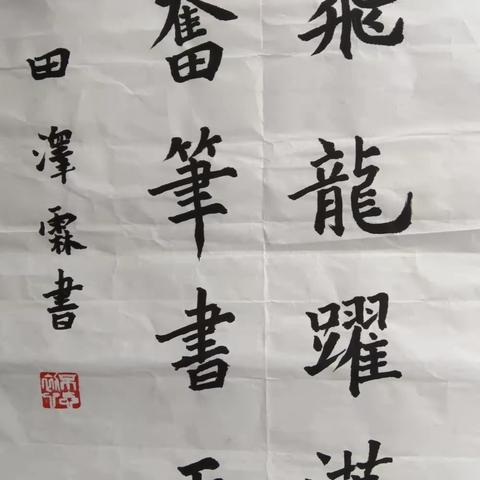 飛龍躍
奮筆書
田澤霖書